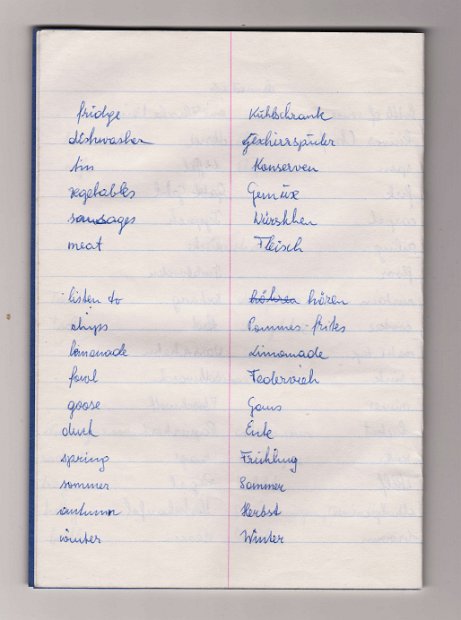 fridge Kühlschrank
dishwasher Geschirrspüler
tin Konserven
vegetables Gemüse
sausages Würstchen
meat Fleisch
listen to hören
chips Pommes-frites
limonade Limonade
fowl Federvieh
goose Gans
duck Ente
spring Frühling
sommer Sommer
autumn Herbst
winter Winter